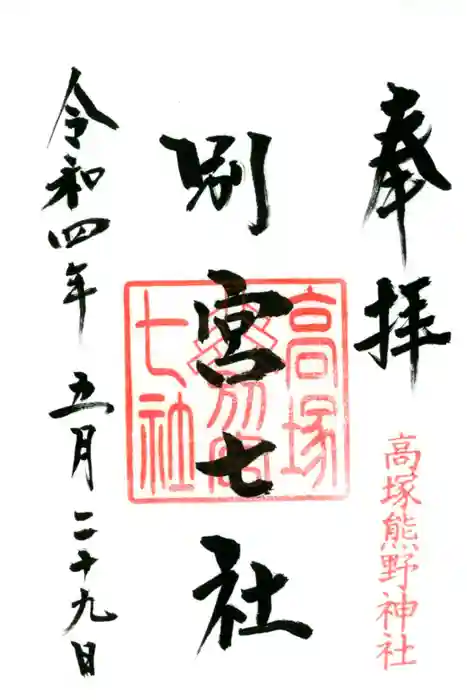 奉拝
高塚熊野神社
別宮七社
高塚
別宮
七社
令和四年 五月二十九日